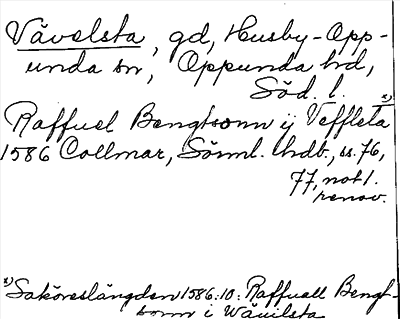 Vävelsta, gd, Husby-Opp-
unda sn, Oppunda hd,
Söd. l.
Raffuel Bengtsonn ij Veffleta x)
1586 Collmar, Sörml. hdb., ss. 76,
77, not 1.
renov.
x) Saköreslängden 1586:10: Raffuell Bengt-
sonn i Wäuilsta